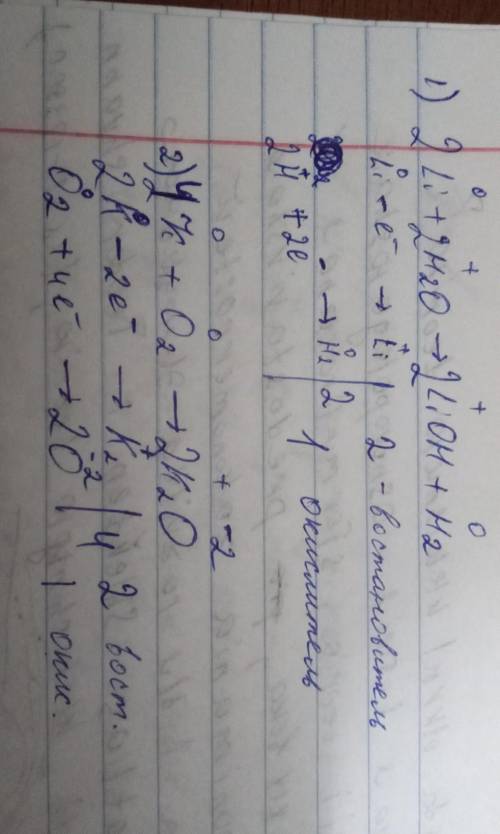 1) 2Li⁰ + 2H₂⁺O → 2Li⁺OH + H₂⁰
Li⁰ - e⁻ → Li⁺ | 2 - востановитель
2H⁺ + 2e⁻ → H₂⁰ | 2 1 окислитель
2) 4K⁰ + O₂⁰ → 2K₂⁺O⁻²
2K⁰ - 2e⁻ → K₂⁺ | 4 2 вост.
O₂⁰ + 4e⁻ → 2O⁻² | 1 окис.